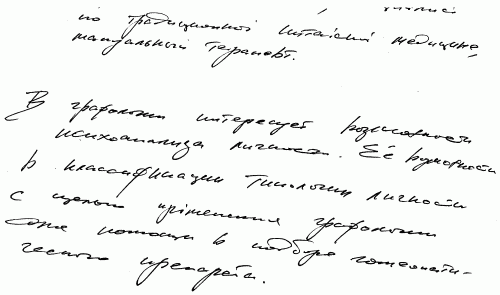 по традиционной китайской медицине,
мануальный терапевт.
В графологии интересует возможности
психоанализа личности. Её возможности
в классификации типологии личности
с целью применения графологии
помощи в подборе гомеопати-
ческого препарата.